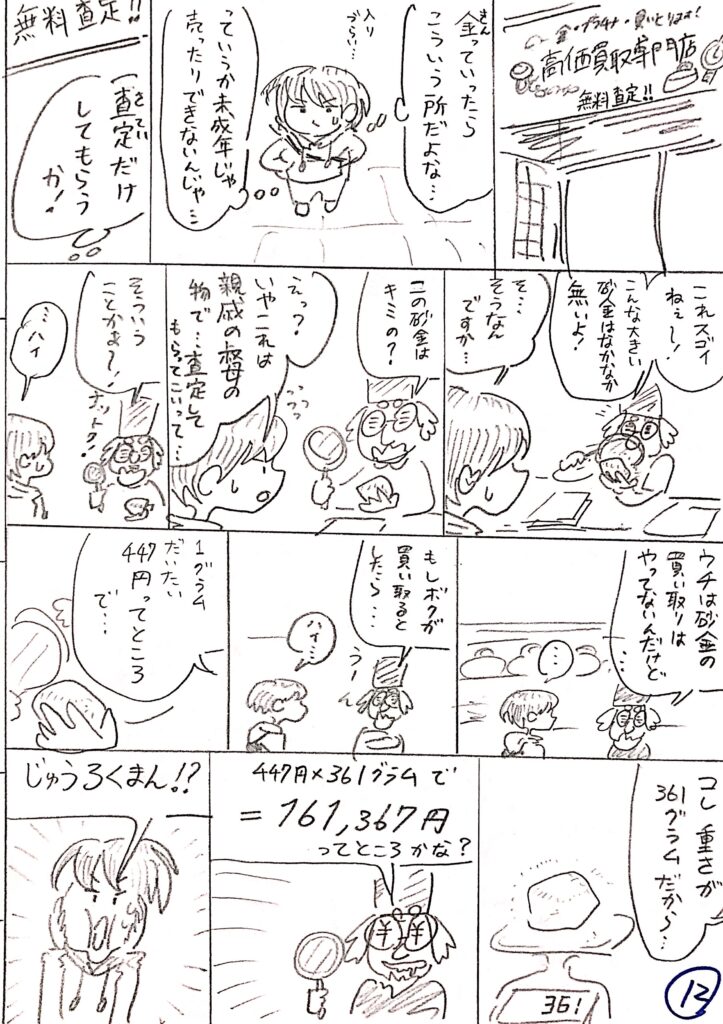 金・プラチナ・買いとります!
高価買取専門店
無料査定!!
金っていったら
きん
こういう所だよな…
入り
づらい…
っていうか未成年じゃ
売ったりできないんじゃ…
無料査定!!
査定だけ
さてい
してもらう
か!
これスゴイ
ねぇ〜!
こんな大きい
砂金はなかなか
無いよ!
そ…
そうなん
ですか…
この砂金は
キミの?
えっ?
いやこれは
親戚の叔母の
物で…査定して
もらってこいって…
そういう
ことかぁ〜!
ナットク!
…ハイ
ウチは砂金の
買い取りは
やってないんだけど
…
…
もしボクが
買い取ると
したら…
うーん
ハイ…
1グラム
だいたい
447円ってところ
で…
コレ重さが
361グラムだから…
361
447円×361グラムで
=161,367円
ってところかな?
¥ ¥
じゅうろくまん!?
13